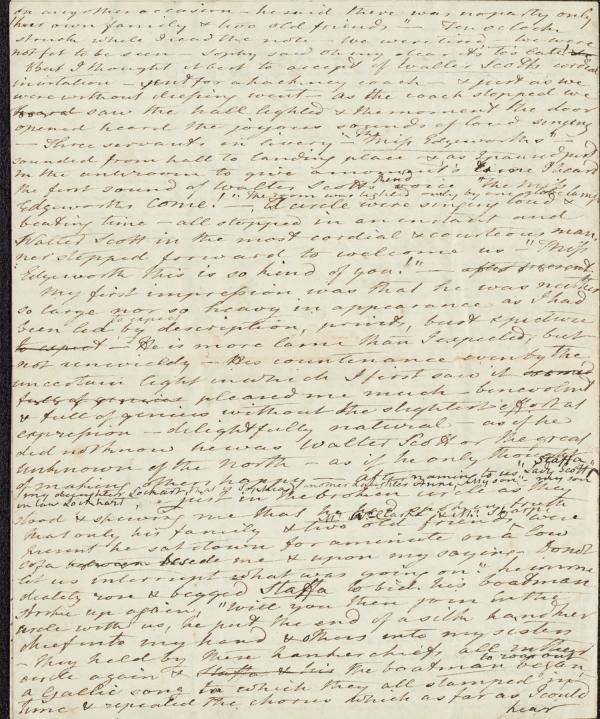 on any other occasion — he said there was no party only
his own family & two old friends" — Ten o'clock
struck while I read the note — We were tired — we were
not fit to be seen — Sophy saw "
But I thought it best to accept of Walter Scotts cordial
invitation — sent for a hackney coach — & just as we
were without dressing went — as the coach stopped we
heard saw the hall lighted & the moment the door
opened heard the joyous sounds of loud singing
— Three servants in livery — "The Miss Edgeworths"
sounded from hall to landing place & as I paused just
in the anteroom to give time I heard
the first sound of Walter Scott's kind voice "The Miss
Edgeworths Come!" The room was lighted only by one globe lamp
A circle were singing loud &
beating time — all stopped in an instant and
Walter Scott in the most cordial & courteous man-
ner stepped forward to welcome us — "Miss
Edgeworth this is so kind of you!" —
My first impression was that he was neither
so large nor so heavy in appearance as I had
been led by description, prints, bust & picture
to expect
to expect — He is more lame than I expected, but
not unwieldy — His countenance even by the
uncertain light in which I first saw it
full of genius pleased me much — benevolent
& full of genius without the slightest effort at
expression — delightfully natural — as if he
did not know he was Walter Scott or the great
unknown of the North — as if he only thought
of making others happy — After naming to us "Lady Scott" Staffa
my daughter Lockhart, Sophia, another daughter Anne, my son, my son
in law Lockhart, just in the broken circle as they
stood & shewing me that
that only his family & two old friends, were
present he sat down for a minute on a low
sofa beside me & upon my saying "Do not
let us interrupt what was going on" he imme
diately rose & begged Staffa to bid his boatman
strike up again, "Will you then join in the
circle with us, he put the end of a silk handker
chief into my hand & others into my sisters
— They held by these handkerchiefs all in their
circle again & Staffa & his the boatman began
to roar out
a Gallic song to which they all stamped in
time & repeated the chorus which as far as I could
hear